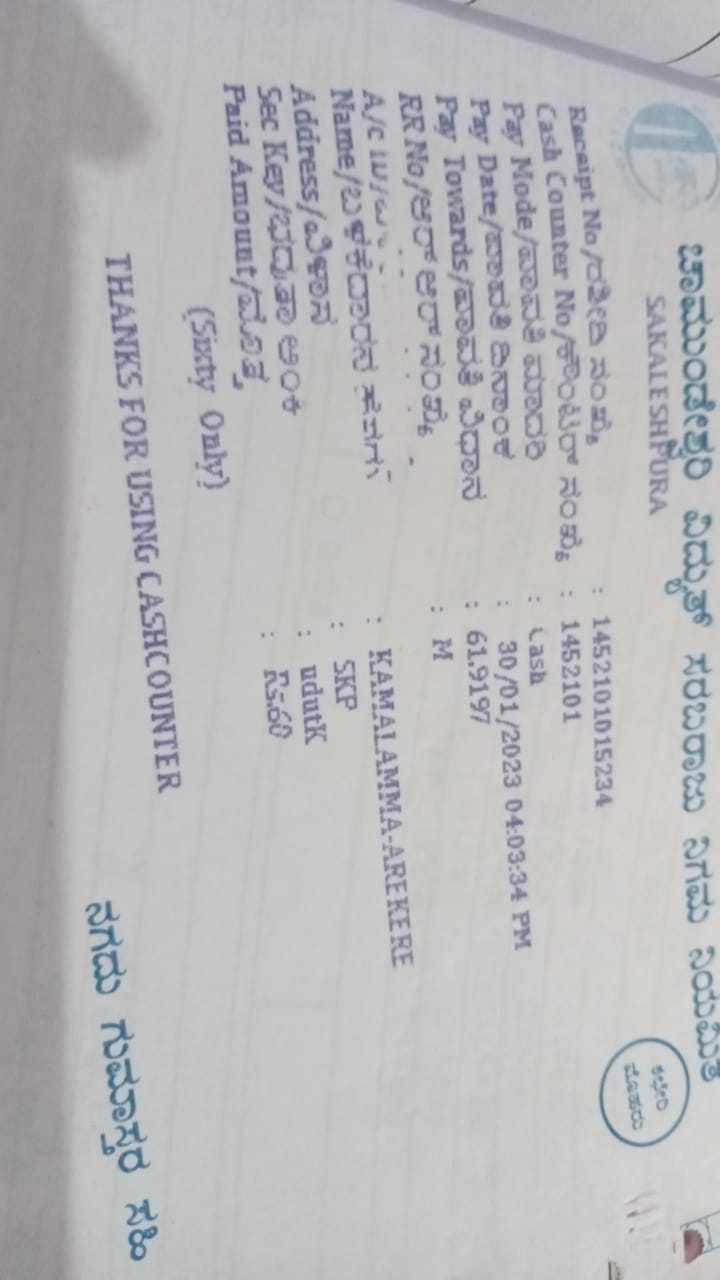 ಚಾಮುಂಡೇಶ್ವರಿ ವಿದ್ಯುತ್ ಸರಬರಾಜು ನಿಗಮ ನಿಯಮಿತ
SAKALESHPURA
ಕಛೇರಿ
ಮೊಹರು
Receipt No/ರಶೀದಿ ಸಂಖ್ಯೆ : 1452101015234
Cash Counter No/ಕೌಂಟರ್ ಸಂಖ್ಯೆ : 1452101
Pay Mode/ಪಾವತಿ ಮಾದರಿ : Cash
Pay Date/ಪಾವತಿ ದಿನಾಂಕ : 30/01/2023 04:03:34 PM
Pay Towards/ಪಾವತಿ ವಿಧಾನ : 61.9197
RR No/ಆರ್ ಆರ್ ಸಂಖ್ಯೆ : M
A/c
Name/ಬಳಕೆದಾರನ ಹೆಸರು : KAMALAMMA-AREKERE
Address/ವಿಳಾಸ : SKP
Sec Key/ಭದ್ರತಾ ಅಂಕಿ : udutK
Paid Amount/ಮೊತ್ತ : Rs.60
(Sixty Only)
THANKS FOR USING CASHCOUNTER
ನಗದು ಗುಮಾಸ್ತರ ಸಹಿ